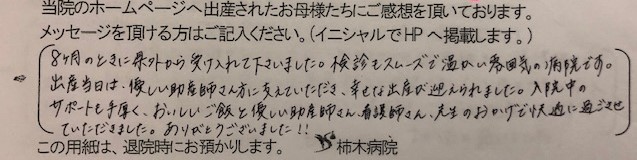 当院のホームページへ出産されたお母様たちにご感想を頂いております。
メッセージを頂ける方はご記入ください。(イニシャルでHPへ掲載します。)
8ヶ月のときに県外から受け入れて下さいました。検診もスムーズで温かい雰囲気の病院です。
出産当日は、優しい助産師さん方に支えていただき、幸せな出産が迎えられました。入院中の
サポートも手厚く、おいしいご飯と優しい助産師さん、看護師さん、先生のおかげで快適に過ごさせ
ていただきました。ありがとうございました!!
この用紙は、退院時にお預かりします。 柿木病院